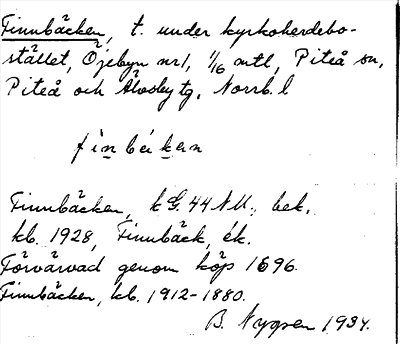 Finnbäcken, t. under kyrkoherdebo-
stället, Öjebyn nr 1, 1/16 mtl, Piteå sn,
Piteå och Älvsby tg, Norrb. l
finbäkan
Finnbäcken, k G. 44 N.U., bek.
kb. 1928, Finnbäck, ék.
Förvärvad genom köp 1696.
Finnbäcken, kb. 1912-1880.
B. Nygren 1934.